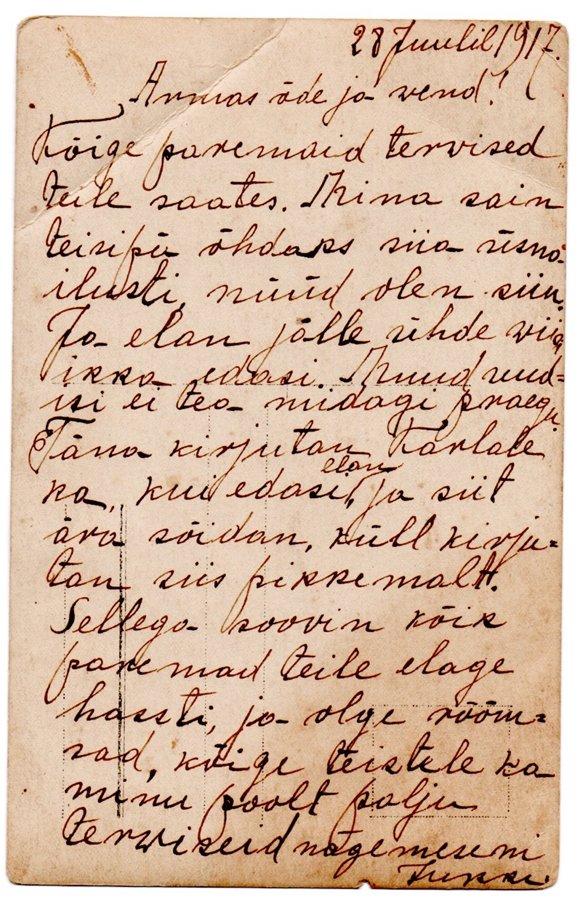 28 Juulil 1917.
Armas õde ja wend!
Kõige paremaid tervised
teile saates. Mina sain
teisipä õhdaks siia üsna
ilusti, nüüd olen siin.
Ja elan jälle ühde wiis
ikka edasi. Muud uud-
isi ei tea midagi praegu
Täna kirjutan Karlale
ka, kui edasi elan, ja siit
ära sõidan, küll kirju=
tan siis pikkemalt.
Sellega soovin kõik
paremad teile elage
hassti, ja olge rõõm=
sad, kõige teistele ka
minu poolt palju
terwiseid nägemeseni